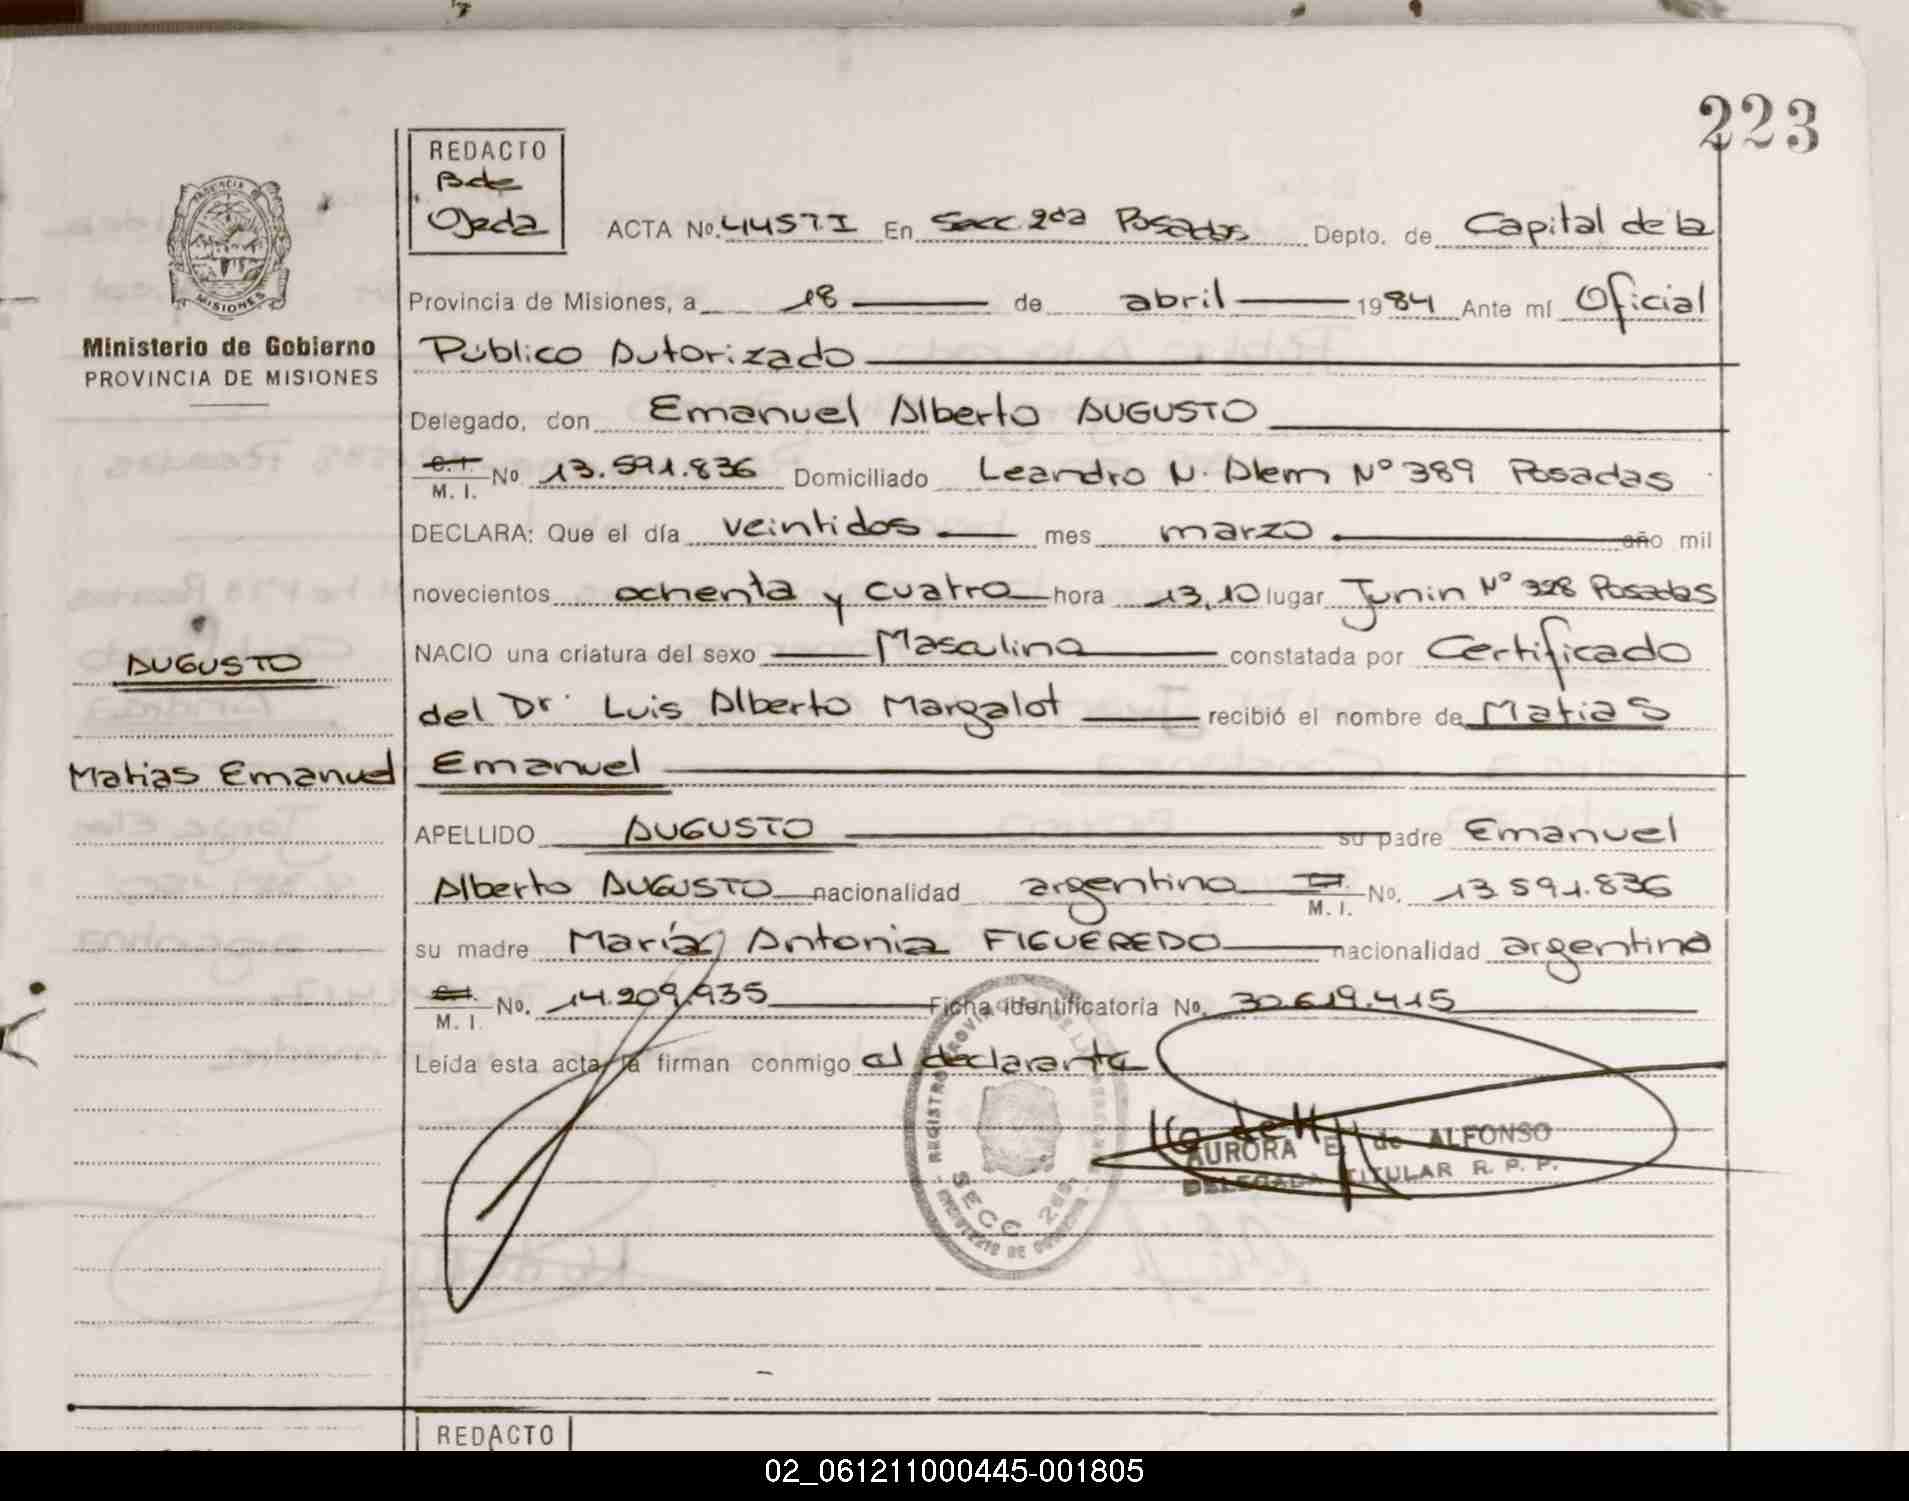 223
REDACTO
B de
Ojeda
ACTA No. 445 T. I En Secc. 2da Posadas Depto. de Capital de la
PROVINCIA
MISIONES
Provincia de Misiones, a 18 de abril 1984 Ante mí Oficial
Ministerio de Gobierno
PROVINCIA DE MISIONES
Público Autorizado
Delegado, don Emanuel Alberto AUGUSTO
C. I.
M. I. No 13.591.836 Domiciliado Leandro N. Alem Nº 389 Posadas
DECLARA: Que el día veintidos mes marzo año mil
novecientos ochenta y cuatro hora 13,10 lugar Junin Nº 328 Posadas
AUGUSTO
NACIO una criatura del sexo Masculino constatada por Certificado
del Dr. Luis Alberto Margalot recibió el nombre de Matias
Matias Emanuel
Emanuel
APELLIDO AUGUSTO su padre Emanuel
Alberto AUGUSTO nacionalidad argentina C. I.
M. I. No. 13.591.836
su madre María Antonia FIGUEREDO nacionalidad argentina
C. I.
M. I. No. 14.209.935 Ficha identificatoria No. 30.619.415
Leída esta acta la firman conmigo el declarante
REGISTRO PROVINCIAL DE LAS PERSONAS
SECC 2da
MINISTERIO DE GOBIERNO
AURORA E. de ALFONSO
DELEGADA TITULAR R. P. P.
REDACTO
02_061211000445-001805